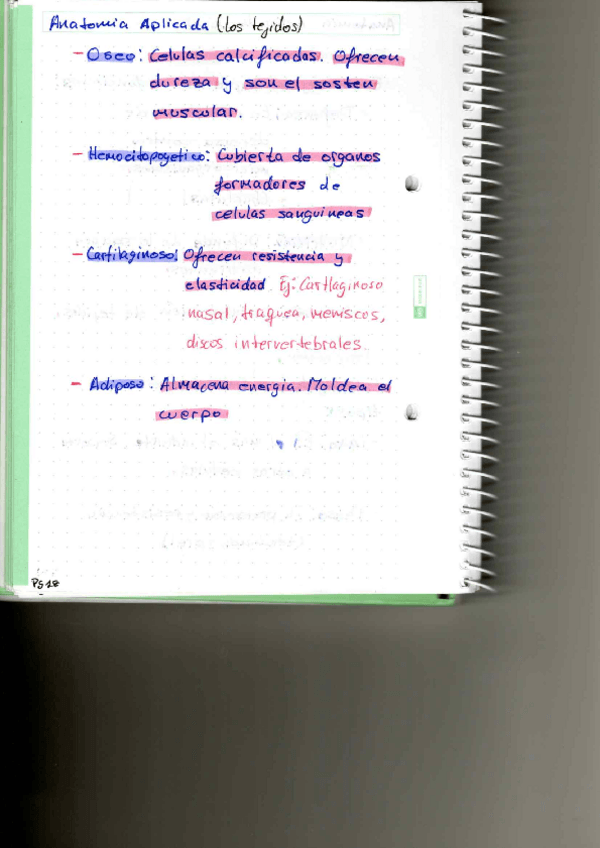 Anatomia Aplicada (Los tejidos)
- Oseo: Celulas calcificadas. Ofrecen
dureza y son el sosten
muscular.
- Hemocitopoyetico: Cubierta de organos
formadores de
celulas sanguineas
- Cartilaginoso: Ofrecen resistencia y
elasticidad Ej: Cartlaginoso
nasal, traquea, meniscos,
discos intervertebrales.
- Adiposo: Almacena energia. Moldea el
cuerpo
PS 18